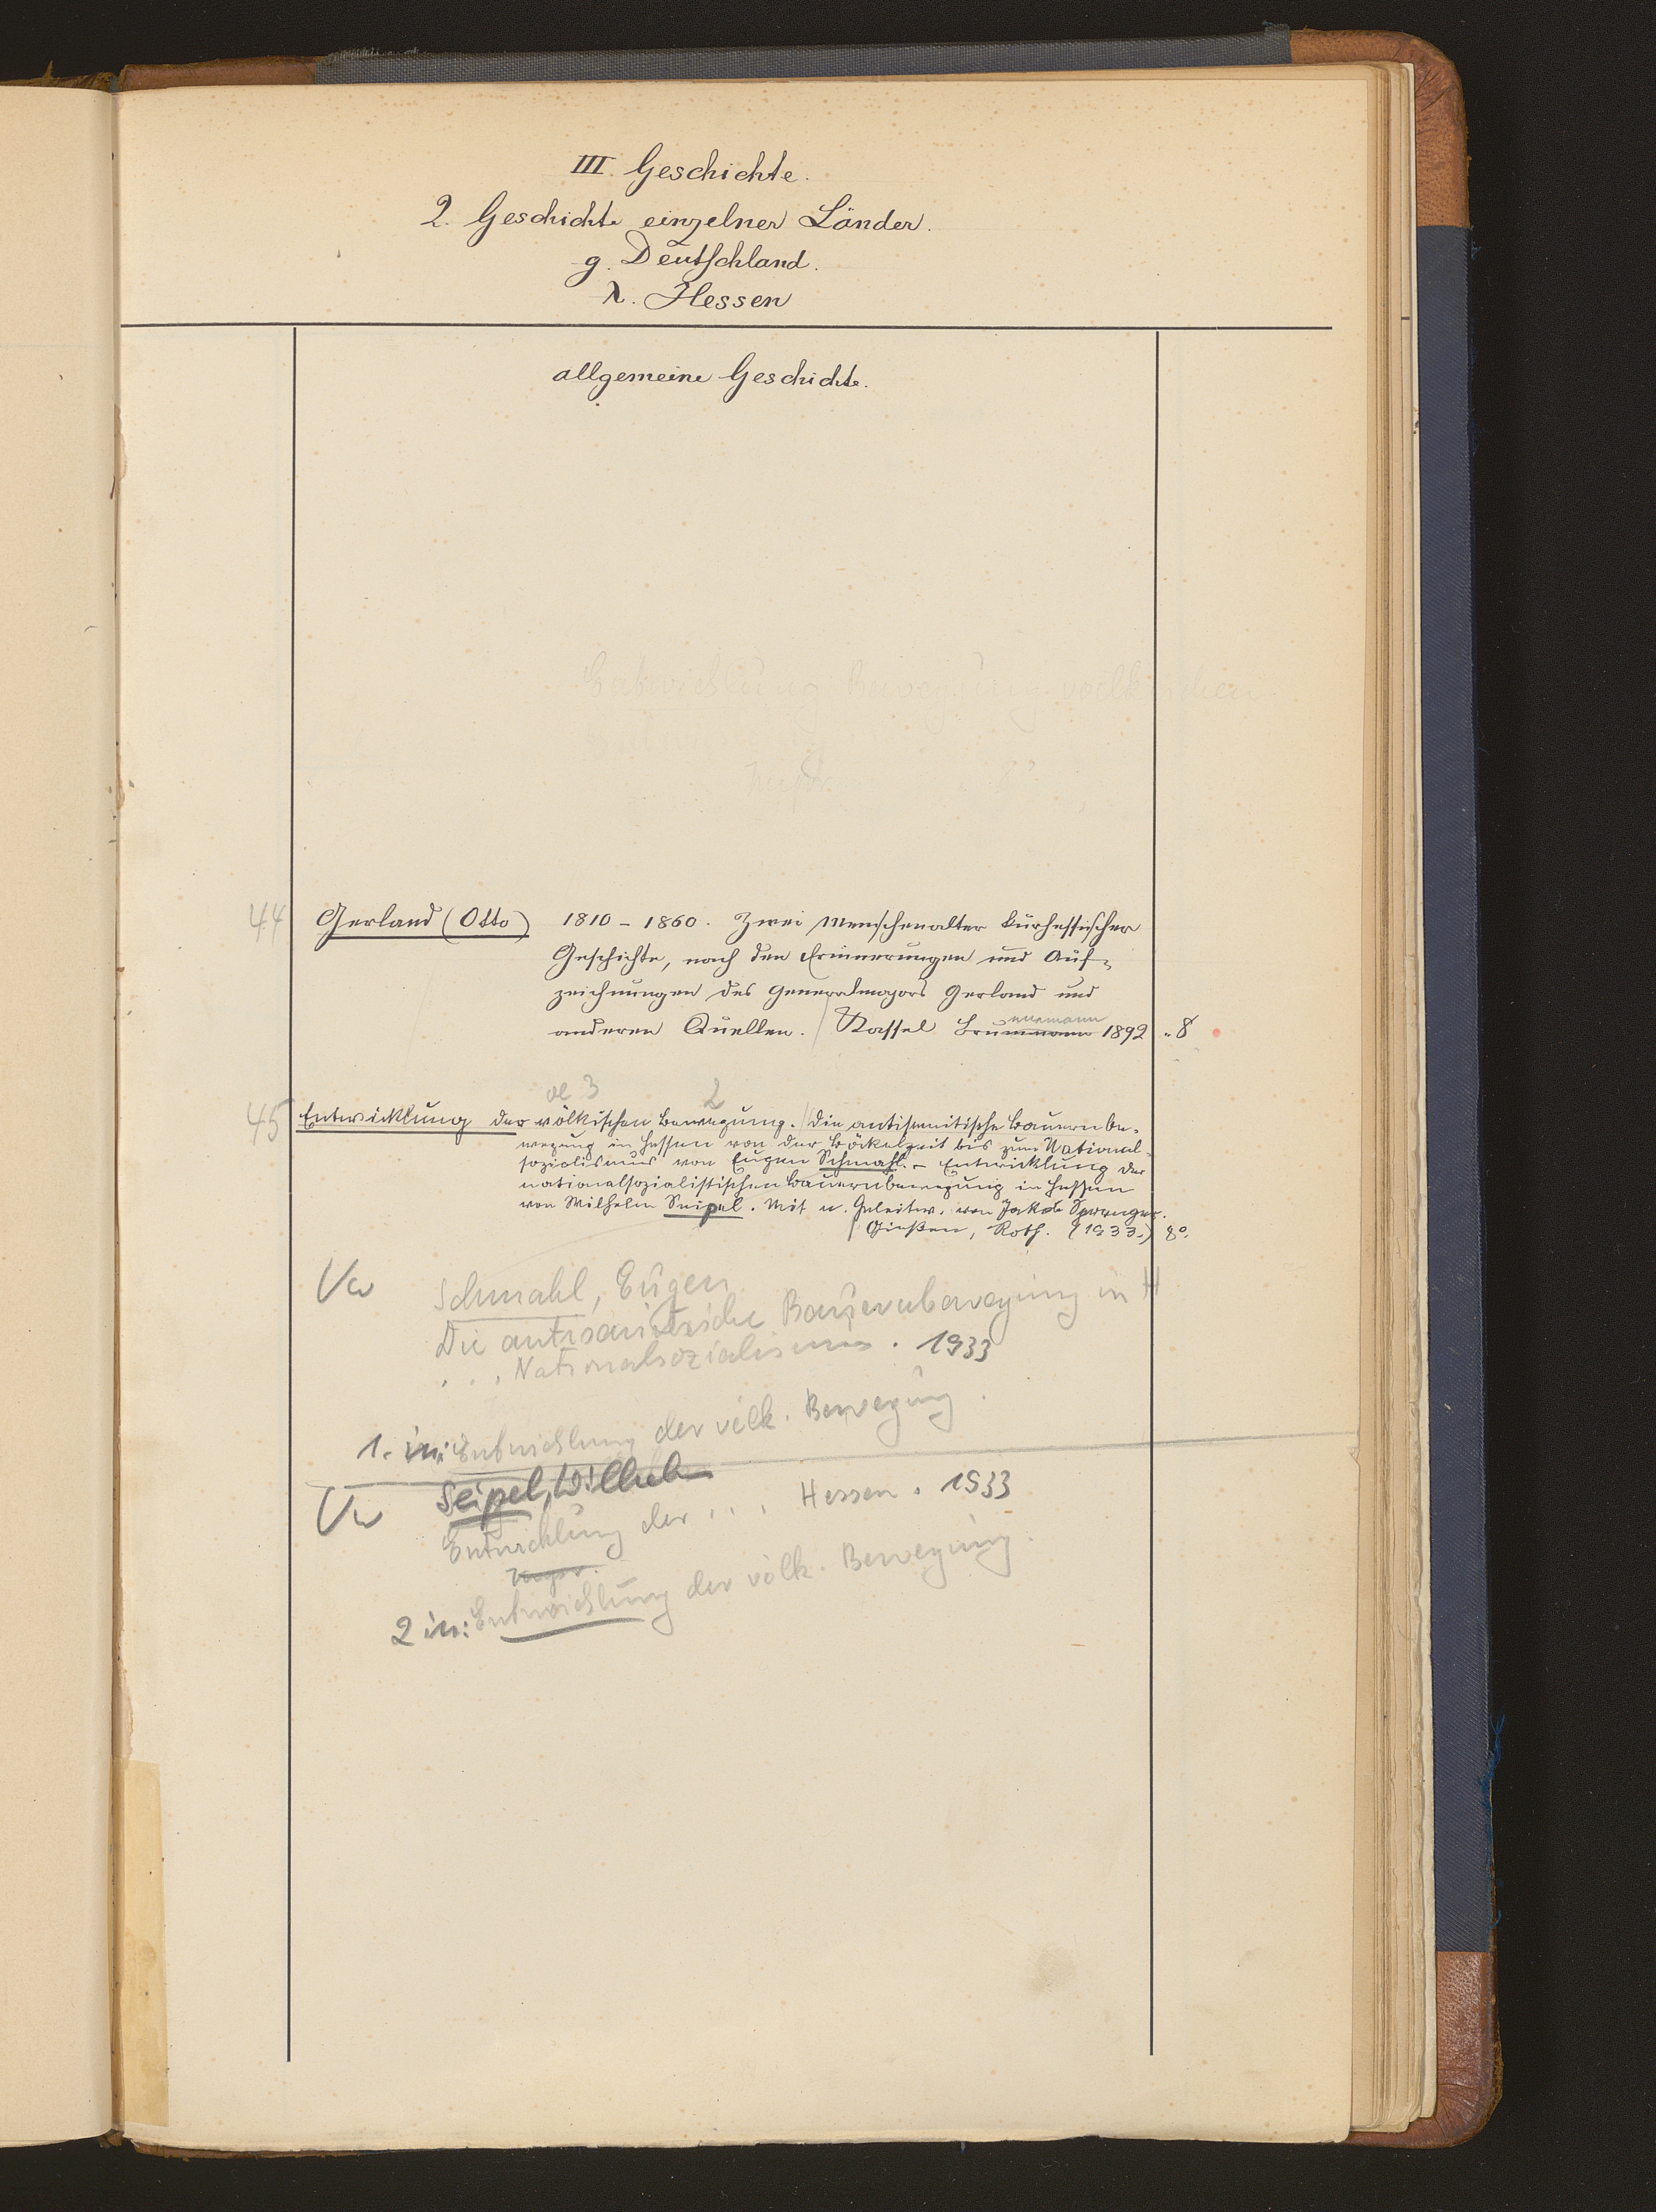 III. Geschichte.
2. Geschichte einzelner Länder.
g. Deutschland.
λ. Hessen
allgemeine Geschichte.
Entwicklung Bewegung voelkischen
44 Gerland (Otto) 1810 - 1860. Zwei Menschenalter kurhessischer
Geschichte, nach den Erinnerungen und Auf-
zeichnungen des Generalmajors Gerland und
nnemann
anderen Quellen. / Kassel Brunnemann 1892 „ 8
oe 3 2
45 Entwicklung der völkischen Bewegung. / Die antisemitische Bauernbe-
wegung in Hessen von der Böckelzeit bis zum National-
sozialismus von Eugen Schmahl. - Entwicklung der
nationalsozialistischen Bauernbewegung in Hessen
von Wilhelm Seipel. Mit e. Geleitw. von Jakob Sprenger.
/ Gießen, Roth. (1933.) 8°.
Vw Schmahl, Eugen
Die antisemitische Bauernbewegung in H
... Nationalsozialismus. 1933
1. in: Entwicklung der völk. Bewegung.
Vw Seipel, Wilhelm
Entwicklung der ... Hessen. 1933
2 in: Entwicklung der völk. Bewegung.